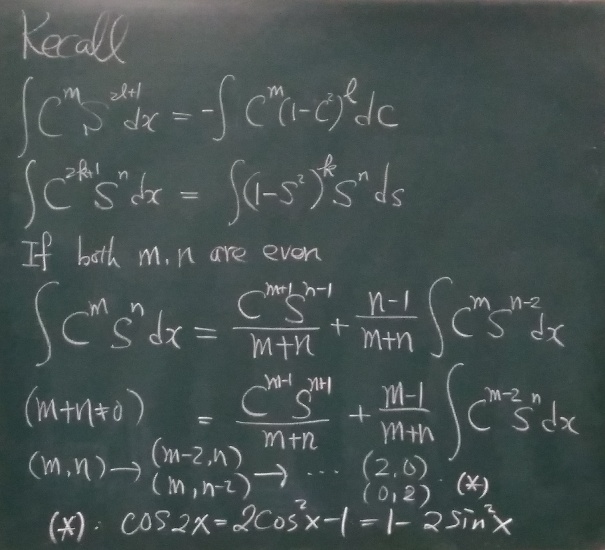 Recall
∫ C^m S^{2l+1} dx = -∫ C^m (1-C^2)^l dC
∫ C^{2k+1} S^n dx = ∫ (1-S^2)^k S^n ds
If both m, n are even
∫ C^m S^n dx = \frac{C^{m+1} S^{n-1}}{m+n} + \frac{n-1}{m+n} ∫ C^m S^{n-2} dx
(m+n≠0) = \frac{C^{m-1} S^{n+1}}{m+n} + \frac{m-1}{m+n} ∫ C^{m-2} S^n dx
(m,n) → (m-2,n) (m,n-2) → ... (2,0) (0,2) . (*)
(*) : cos2x = 2cos^2x - 1 = 1 - 2sin^2x